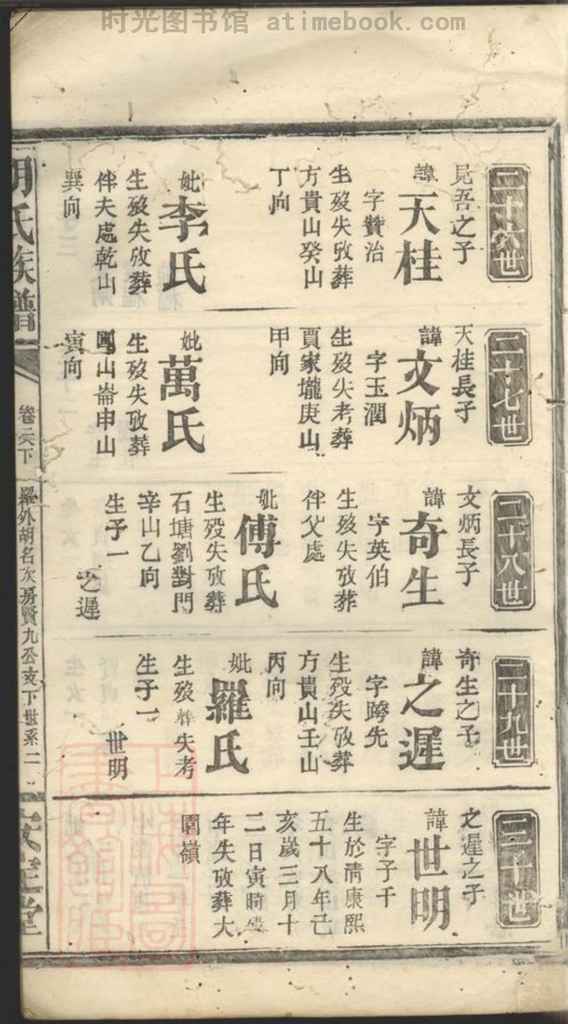 时光图书馆 atimebook.com
二十六世
見吾之子
諱天桂
字贊治
生歿失攷葬
方貴山癸山
丁向
妣李氏
生歿失攷葬
伴夫處乾山
巽向
二十七世
天桂長子
諱文炳
字玉潤
生歿失考葬
賈家壠庚山
甲向
妣萬氏
生歿失攷葬
山崙申山
寅向
二十八世
文炳長子
諱奇生
字英伯
生歿失攷葬
伴父處
妣傅氏
生歿失攷葬
石塘劉對門
辛山乙向
生子一
之遲
二十九世
奇生之子
諱之遲
字跨先
生歿失攷葬
方貴山壬山
丙向
妣羅氏
生歿葬失考
生子一
世明
三十世
之遲之子
諱世明
字子千
生於清康熙
五十八年己
亥歲三月十
二日寅時歿
年失攷葬大
園嶺
胡氏族譜
卷之六下
羅外胡名次房賢九公支下世系二
安定堂